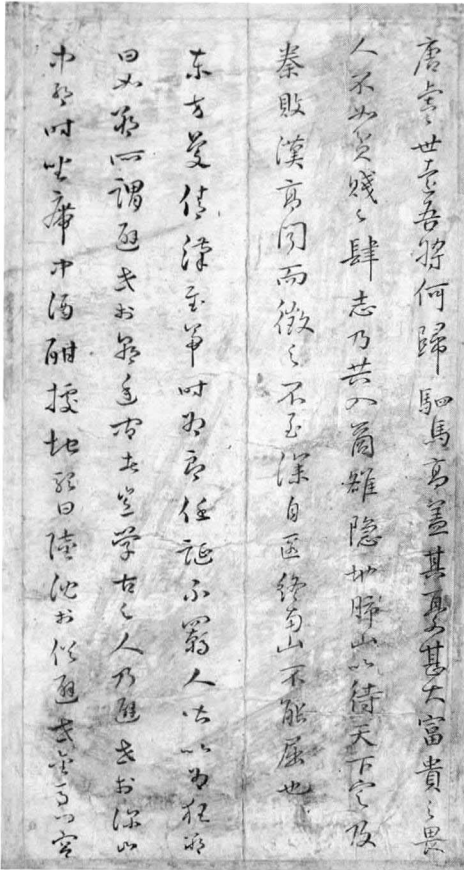 唐虞世遠吾將何歸駟馬高蓋其憂甚大富貴之畏
人不如貧賤之肆志乃共入商雒隱地肺山以待天下定及
秦敗漢高聞而徵之不至深自匿終南山不能屈也
東方曼倩漢武帝時為郎任誕不羈人皆以為狂朔
曰如朔所謂避世於朝廷間者豈學古之人乃避世於深山
中朔時坐席中酒酣據地歌曰陸沈於俗避世金馬門宮